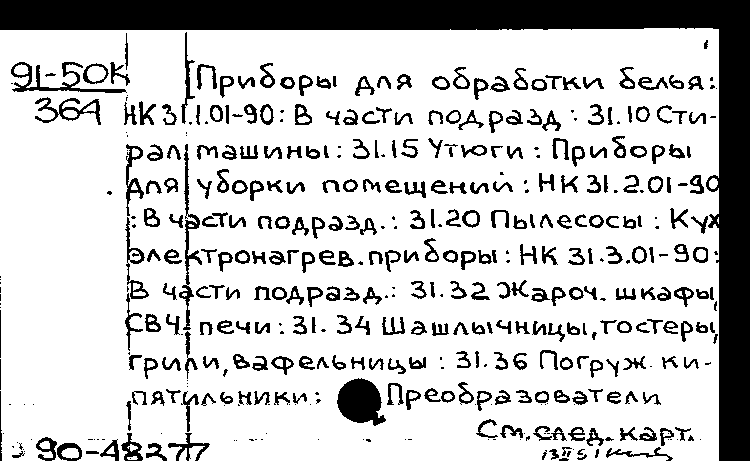 91-50К [Приборы для обработки белья:
364 НК 31.1.01-90: В части подразд: 31.10 Сти-
рал. машины: 31.15 Утюги: Приборы
для уборки помещений: НК 31.2.01-90
: В части подразд.: 31.20 Пылесосы: Кух
электронагрев. приборы: НК 31.3.01-90:
В части подразд.: 31.32 Жароч. шкафы,
СВЧ- печи: 31.34 Шашлычницы, тостеры,
грили, вафельницы: 31.36 Погруж. ки-
пятильники: Преобразователи
См. след. карт.
90-48277